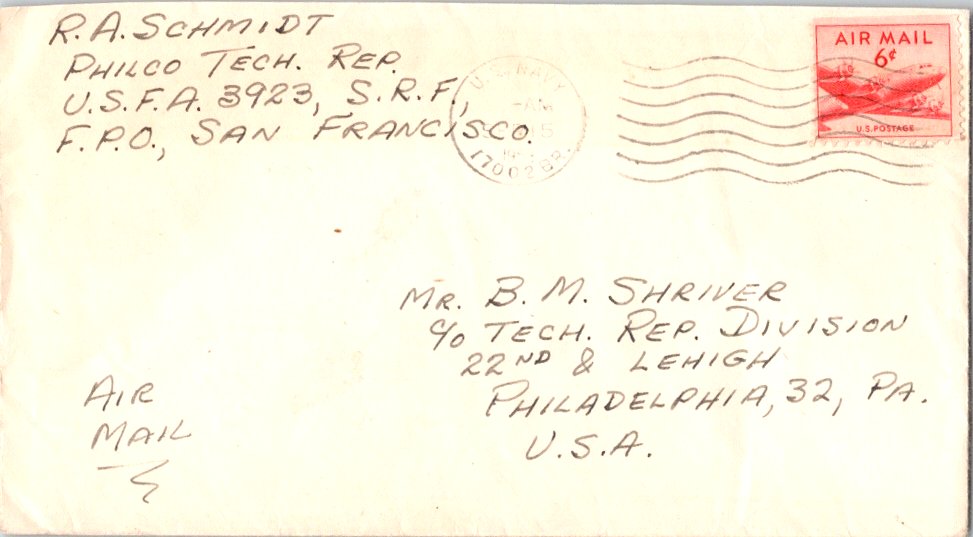 R. A. SCHMIDT
PHILCO TECH. REP.
U.S.F.A. 3923, S.R.F.,
F.P.O., SAN FRANCISCO.
U.S. NAVY
AM
15
17002 BR.
AIR MAIL
6¢
U.S. POSTAGE
MR. B. M. SHRIVER
c/o TECH. REP. DIVISION
22ND & LEHIGH
PHILADELPHIA, 32, PA.
U.S.A.
AIR
MAIL